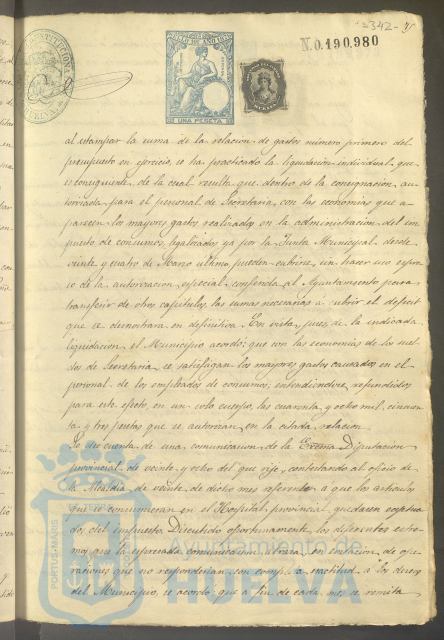 =342=
N.0.190,980
SELLO DE AÑO
UNA PESETA
al estampar la suma de la relacion de gastos número primero del
presupuesto en ejercicio, se ha practicado la liquidacion individual que
es consiguiente, de la cual resulta que dentro de la consignacion au-
torizada para el personal de Secretaria, con las economias que a-
parecen los mayores gastos realizados en la administracion del im
puesto de consumos, legalizados ya por la Junta Municipal, desde
veinte y cuatro de Marzo último pueden cubrirse, sin hacer uso
de la autorizacion especial conferida al Ayuntamiento para
transferir de otros capitulos las sumas necesarias a cubrir el deficit
que se demostrara en definitiva. En vista, pues, de la indicada
liquidacion, el Municipio acordó: que con las economias de los suel-
dos de Secretaria, se satisfagan los mayores gastos causados en el
personal de los empleados de consumos, entendiendose refundidos
para este efecto, en un solo cuerpo, las cuarenta y ocho mil, cincuen
ta y tres pesetas que se autorizan en la citada relacion
Se dió cuenta de una comunicacion de la Excma Diputacion
provincial de veinte y ocho del que rije, contestando al oficio de
la Alcaldia de veinte de dicho mes referente a que los articulos
que se consumieran en el Hospital provincial quedasen exceptua
dos del impuesto. Discutido oportunamente los diferentes estre-
mos que la espresada comunicacion abraza, en evitacion de ope-
raciones que no responderian con completa exactitud a los deseos
del Municipio, se acordó: que a fin de cada mes se remita
PORTUS MARIS
Ayuntamiento de
HUELVA